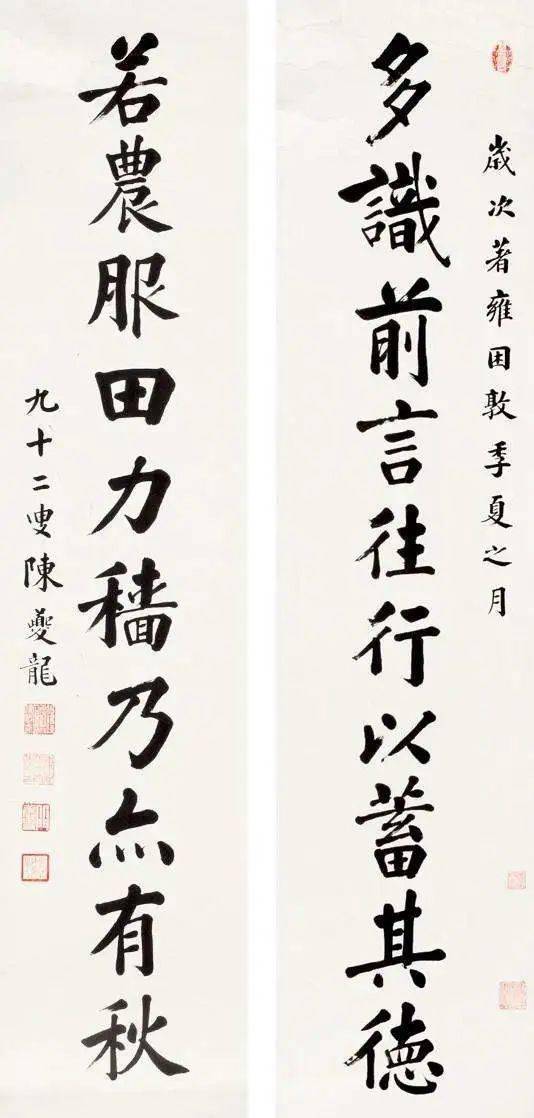 歲次著雍困敦季夏之月
多識前言往行以蓄其德
若農服田力穡乃亦有秋
九十二叟陳夔龍